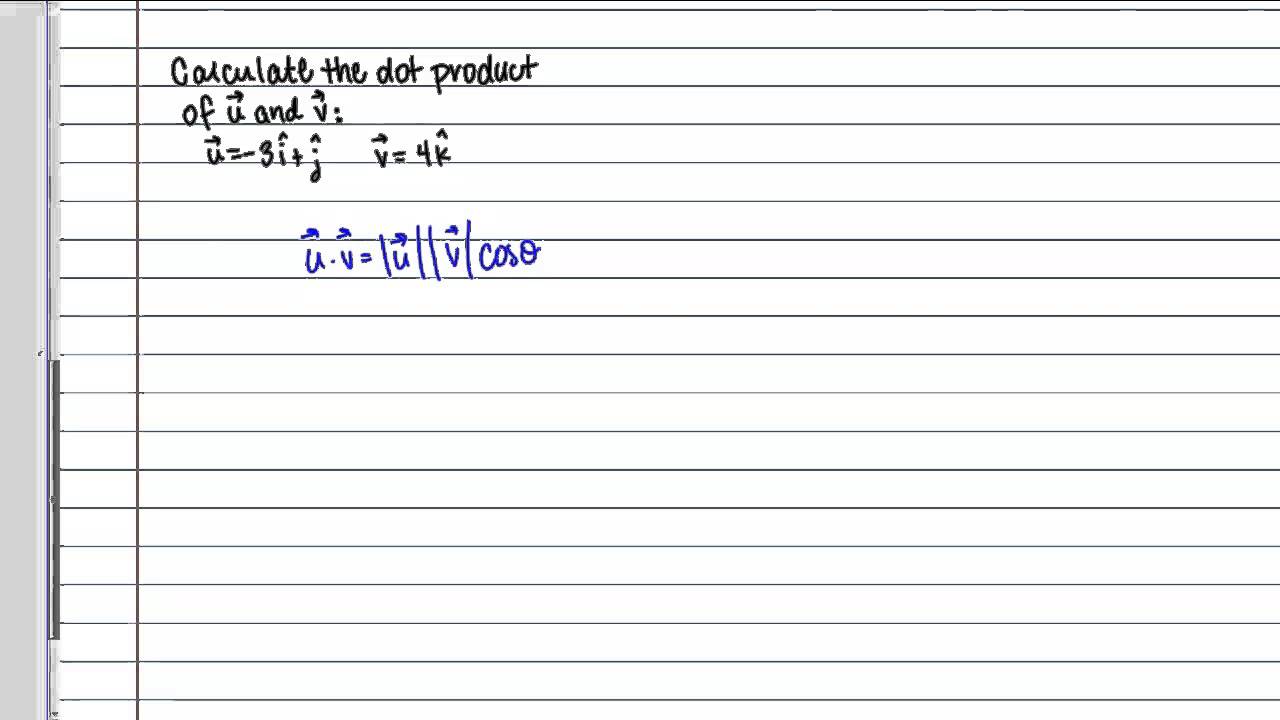 Calculate the dot product
of u⃗ and v⃗:
u⃗=-3î+ĵ v⃗=4k̂
u⃗·v⃗=|u⃗||v⃗|cosθ